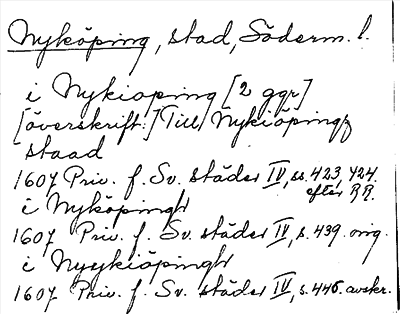 Nyköping, stad, Söderm. l.
i Nykioping [2 ggr]
[överskrift:] Till Nykiöpingz
staad
1607 Priv. f. Sv. städer IV, ss. 423, 424.
efter RR.
i Nyköpingh
1607 Priv. f. Sv. städer IV, s. 439. orig.
i Nyykiöpingh
1607 Priv. f. Sv. städer IV, s. 446. avskr.